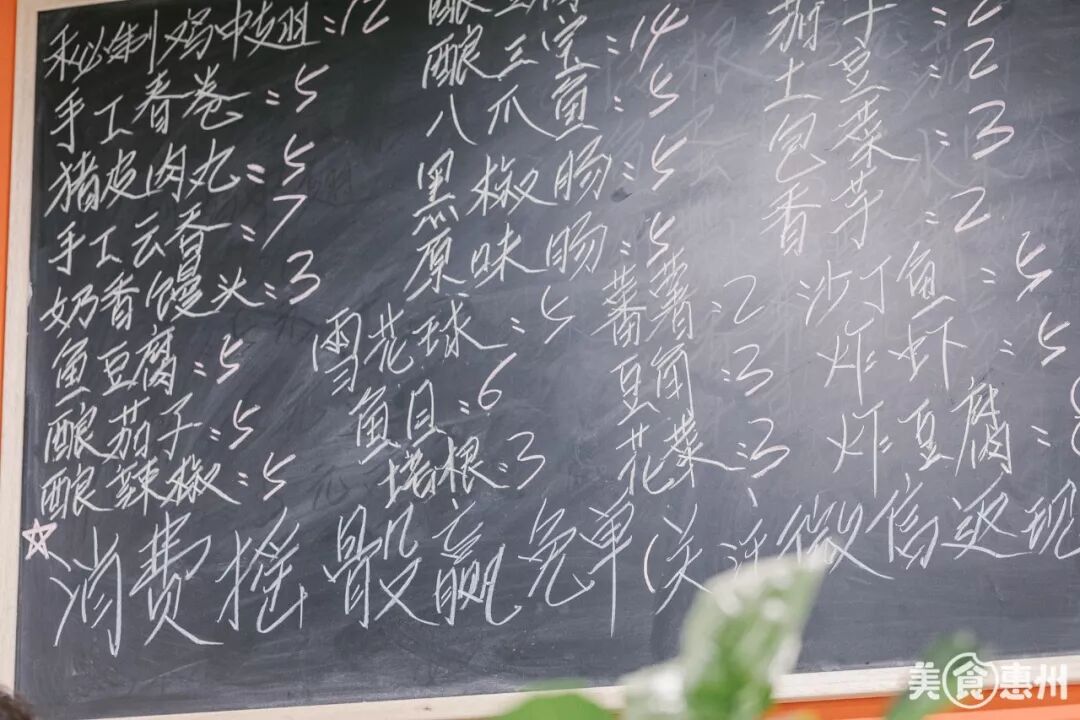 秘制鸡中翅:12
手工春卷:5
猪皮肉丸:5
手工云吞:7
奶香馒头:3
鱼豆腐:5
酿茄子:5
酿辣椒:5
酿豆腐
酿三宝:14
八爪鱼:5
黑椒肠:5
原味肠:5
雪花球:5
鱼目:6
培根:3
茄子:2
土豆:2
包菜:3
香芋:2
番薯:2
豆角:3
花菜:3
沙丁鱼:5
炸虾:5
炸豆腐:
☆消费摇骰赢免单(关注微信返现
美食惠州